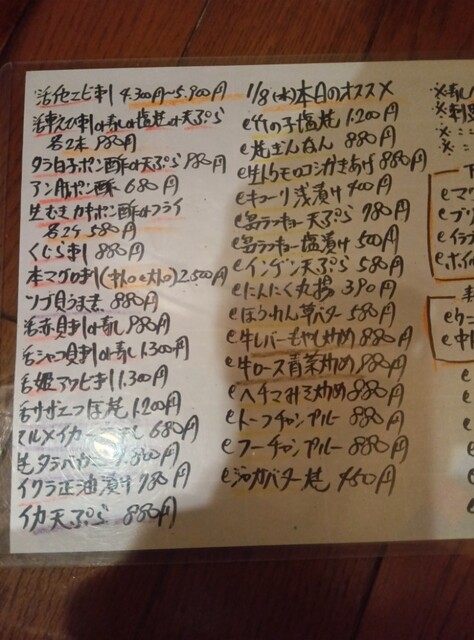 活伊勢エビ刺 4,300円〜5,900円
活車えび刺or寿しor塩焼or天ぷら
各2本 980円
タラ白子ポン酢or天ぷら 980円
アン肝ポン酢 680円
生むきカキポン酢orフライ
各2ケ 580円
くじら刺 880円
本マグロ刺(中トロ・大トロ) 2,500円
ツブ貝うま煮 880円
活赤貝刺or寿し 980円
活シャコ貝刺or寿し 1,300円
活姫アワビ刺 1,300円
活サザエつぼ焼 1,200円
マルメイカ 680円
生タラバガニ 1,800円
イクラ正油漬け 780円
イカ天ぷら 880円
1/8(水)本日のオススメ
・竹の子塩焼 1,200円
・焼ぎんなん 880円
・生トウモロコシかきあげ 880円
・キューリ浅漬け 400円
・島ラッキョー天ぷら 780円
・島ラッキョー塩漬け 500円
・インゲン天ぷら 580円
・にんにく丸揚 390円
・ほうれん草バター 580円
・牛レバーもやし炒め 880円
・牛ロース青菜炒め 880円
・ヘチマみそ炒め 880円
・トーフチャンプルー 880円
・フーチャンプルー 880円
・ジャガバター焼 450円